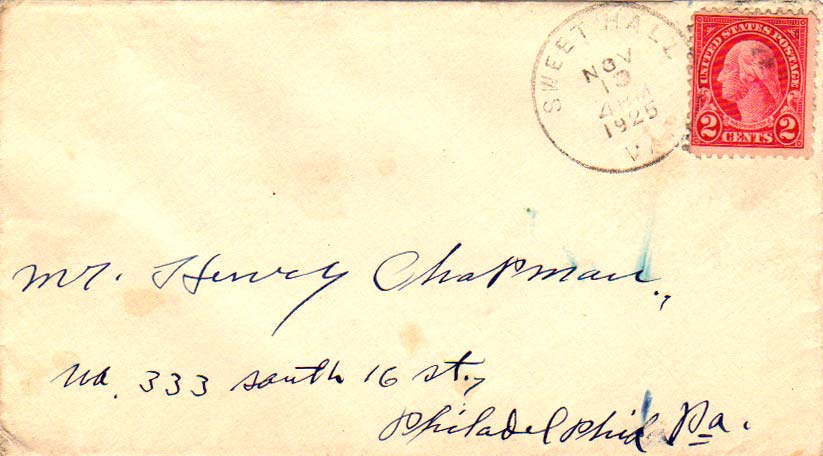 SWEET HALL
NOV
13
4 PM
1925
VA
UNITED STATES POSTAGE
2 CENTS 2
Mr. Henry Chapman.,
No. 333 south 16 st.,
Philadelphia Pa.